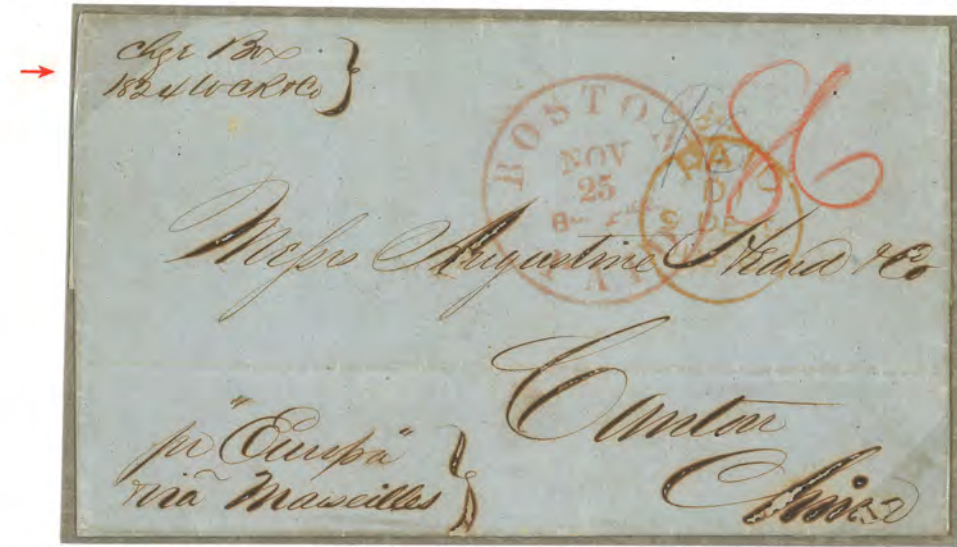 Chge Box
1824 W C R & Co
BOSTON
NOV
25
PAID
Messrs Augustine Heard & Co
Canton
China
pr "Europa"
via Marseilles